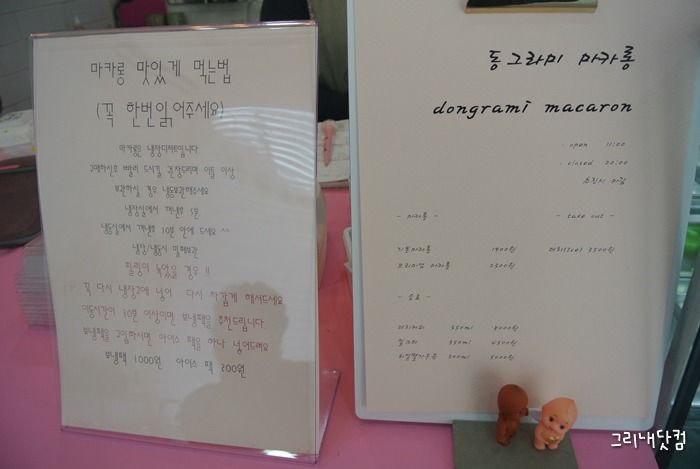 마카롱 맛있게 먹는법
(꼭 한번읽어주세요)
마카롱은 냉장디저트입니다
구매하신후 빨리 드시길 권장드리며 이틀 이상
보관하실 경우 냉동보관해주세요
냉장실에서 꺼낸후 5분
냉동실에서 꺼낸후 10분 안에 드세요 ^^
냉장/냉동시 밀폐보관
필링이 녹았을 경우 !!
꼭 다시 냉장고에 넣어 다시 차갑게 해서드세요
이동시간이 10분 이상이면 보냉팩을 추천드립니다
보냉팩을 구입하시면 아이스 팩을 하나 넣어드려요
보냉팩 1000원 아이스 팩 200원
동그라미 마카롱
dongrami macaron
· open 11:00
· closed 20:00
소진시 마감
- 마카롱 -
- take out -
기본마카롱 1900원
프리미엄 마카롱 2300원
- 음료 -
350ml
350ml 4500원
500ml 5000원
그리내닷컴